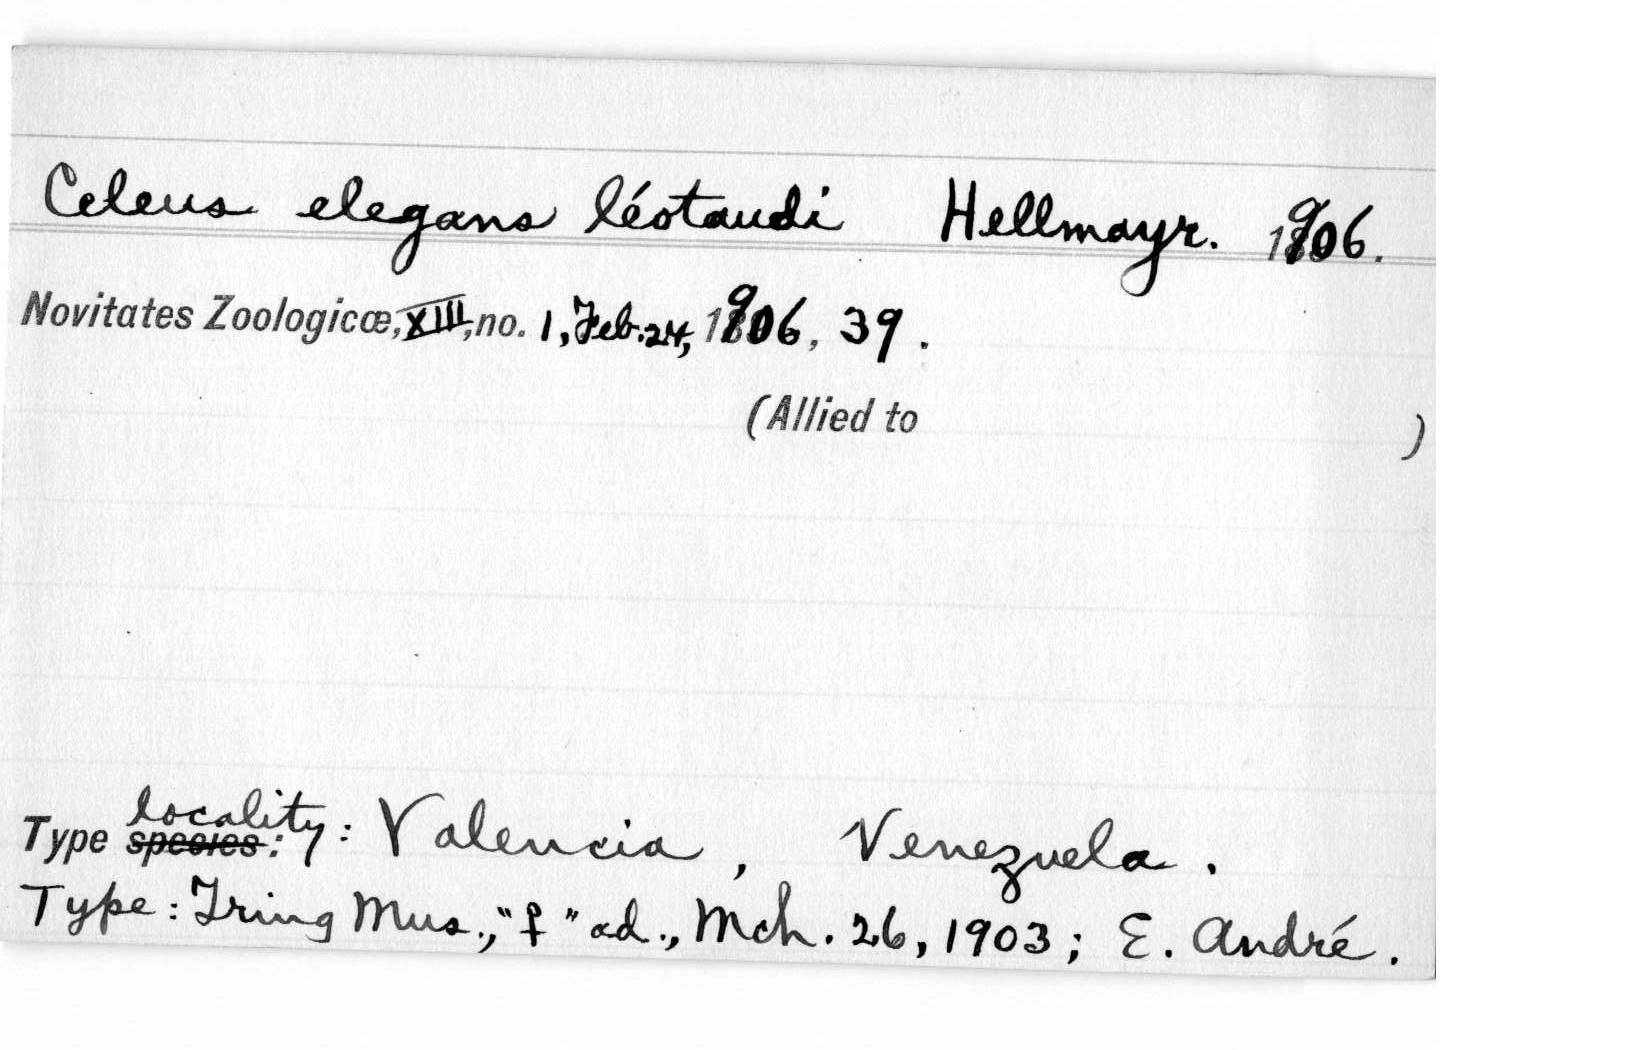 Celeus elegans léotaudi Hellmayr. 1906.
Novitates Zoologicæ, XIII, no. 1, Feb. 24, 1906, 39.
(Allied to )
Type species: locality: Valencia, Venezuela.
Type: Tring Mus., "♀" ad., Mch. 26, 1903; E. André.